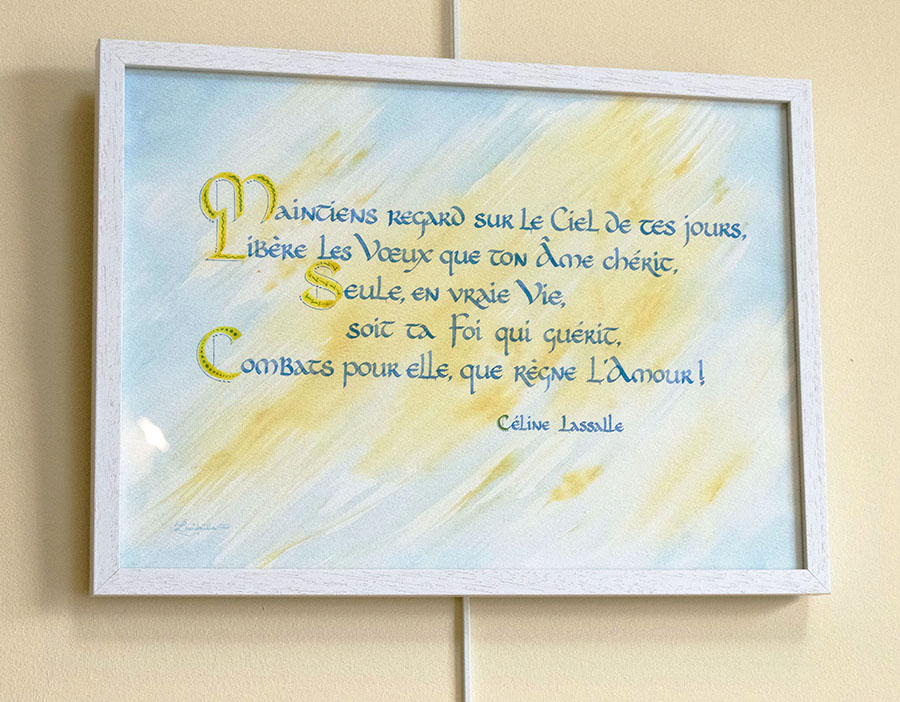 Maintiens regard sur le Ciel de tes jours,
Libère les Vœux que ton Âme chérit,
Seule, en vraie Vie,
soit ta Foi qui guérit,
Combats pour elle, que règne l'Amour !
Céline Lassalle